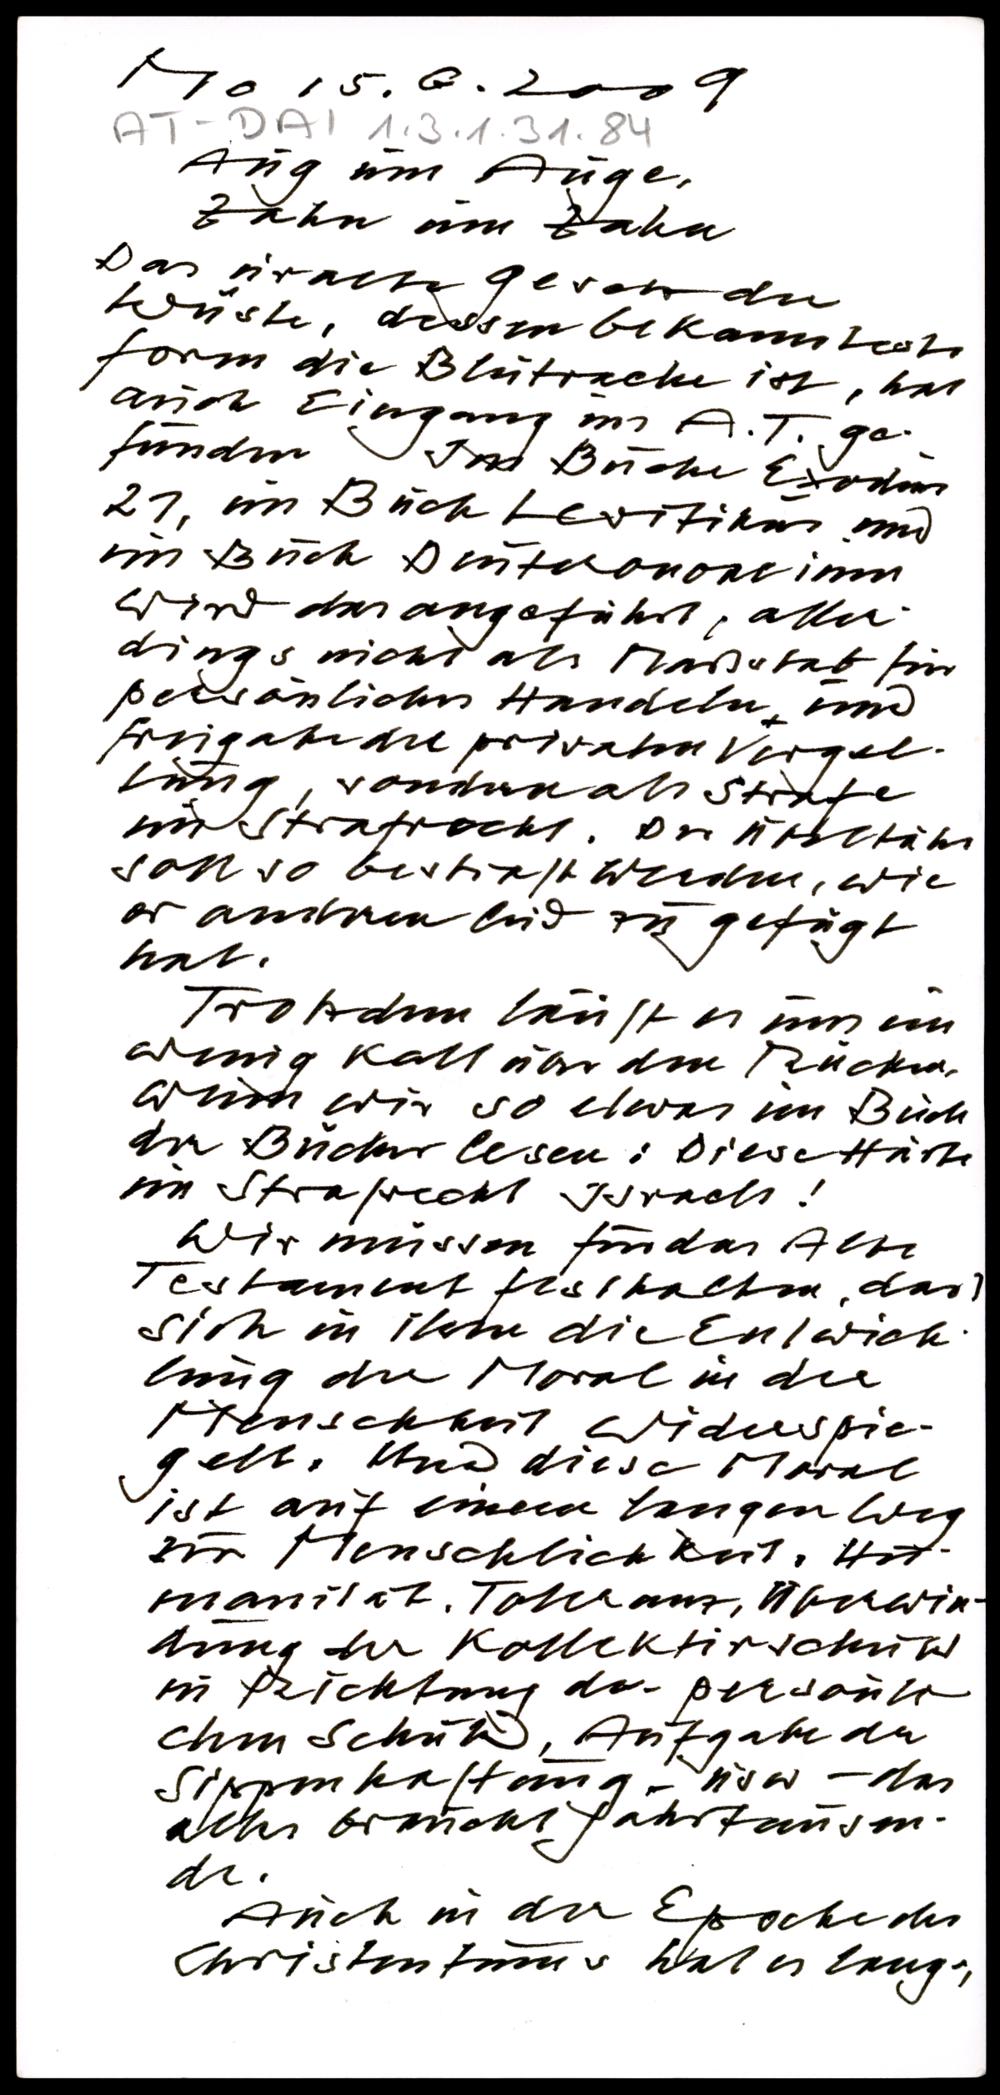 Mo 15.6.2009
AT-DAI 1.3.1.31.84
Aug um Auge,
Zahn um Zahn
Das uralte Gesetz der
Wüste, dessen bekannteste
Form die Blutrache ist, hat
auch Eingang ins A.T. ge-
funden Im Buche Exodus
21, im Buch Levitikus und
im Buch Deuteronomium
wird das angeführt, aller-
dings nicht als Maßstab für
persönliches Handeln und
Freigabe der privaten Vergel-
tung, sondern als Strafe
im Strafrecht. Der Übeltäter
soll so bestraft werden, wie
er anderen Leid zugefügt
hat.
Trotzdem läuft es uns ein
wenig kalt über den Rücken,
wenn wir so etwas im Buch
der Bücher lesen: Diese Härte
im Strafrecht Israels!
Wir müssen für das Alte
Testament festhalten, dass
sich in ihm die Entwick-
lung der Moral in der
Menschheit widerspie-
gelt. Und diese Moral
ist auf einem langen Weg
zur Menschlichkeit. Hu-
manität, Toleranz, Überwin-
dung der Kollektivschuld
in Richtung der persönli-
chen Schuld, Aufgabe der
Sippenhaftung - usw - das
alles braucht Jahrtausen-
de.
Auch in der Epoche des
Christentums hat es lang,